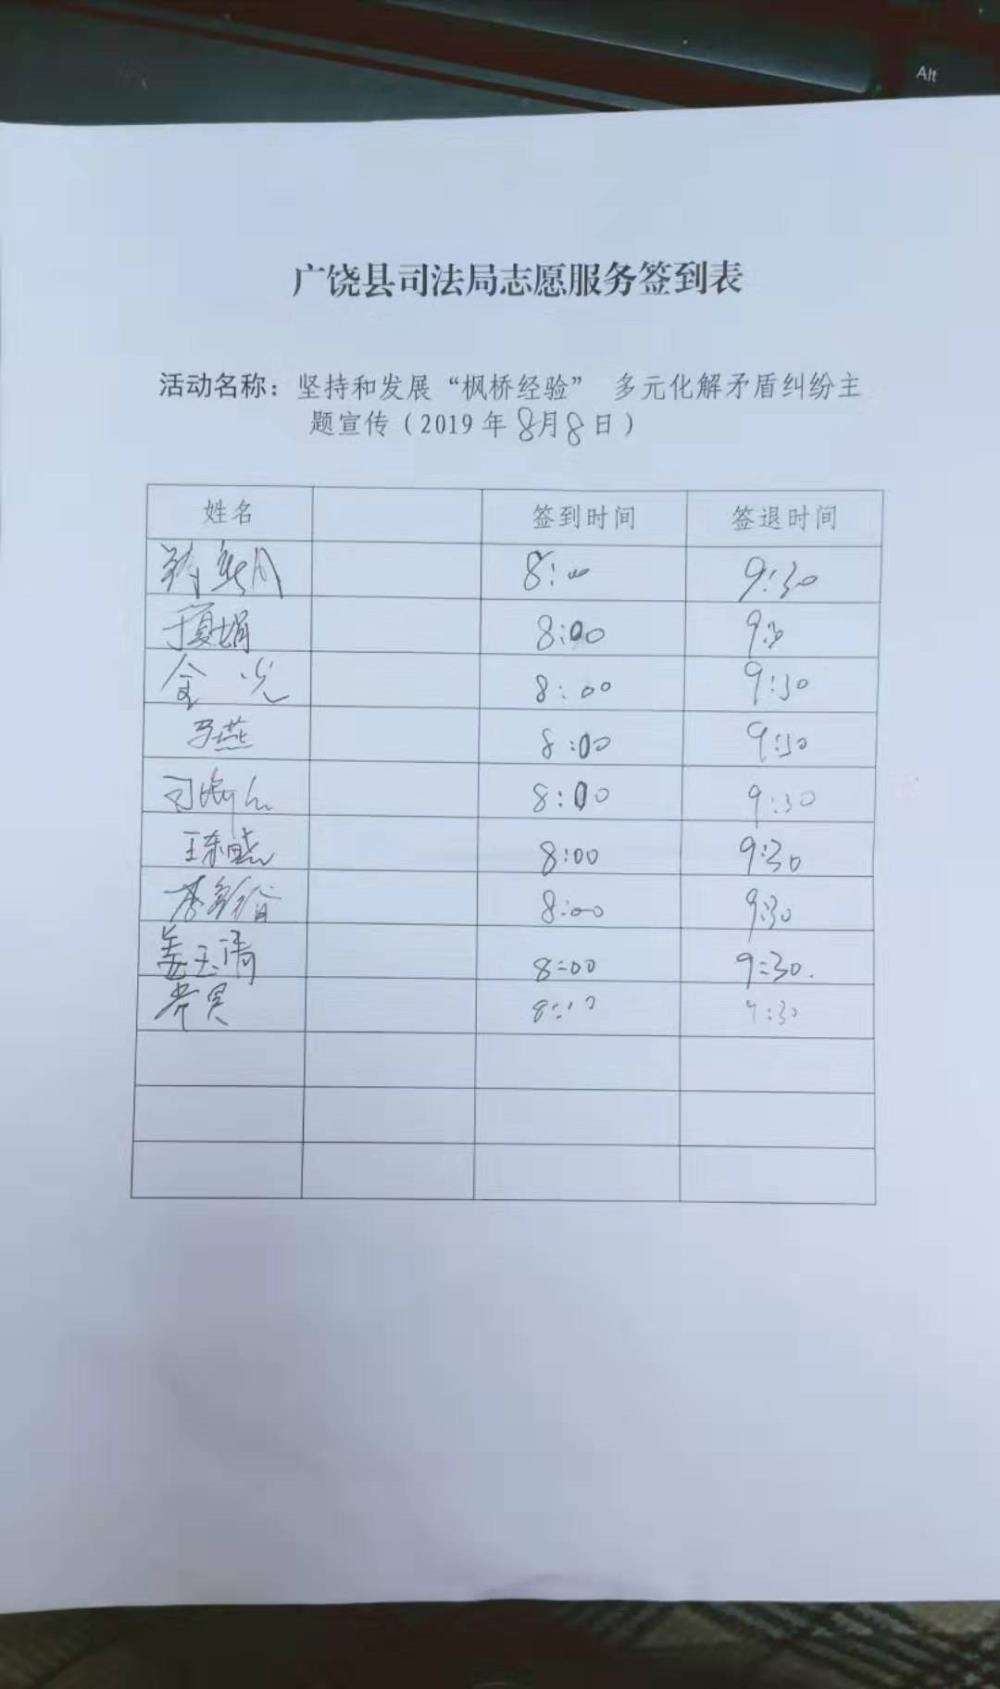 Alt
广饶县司法局志愿服务签到表
活动名称：坚持和发展“枫桥经验” 多元化解矛盾纠纷主
题宣传（2019年8月8日）
姓名 签到时间 签退时间
8:00 9:30
于夏娟 8:00 9:30
金光 8:00 9:30
马燕 8:00 9:30
8:00 9:30
王东晓 8:00 9:30
8:00 9:30
姜玉清 8:00 9:30.
9:30